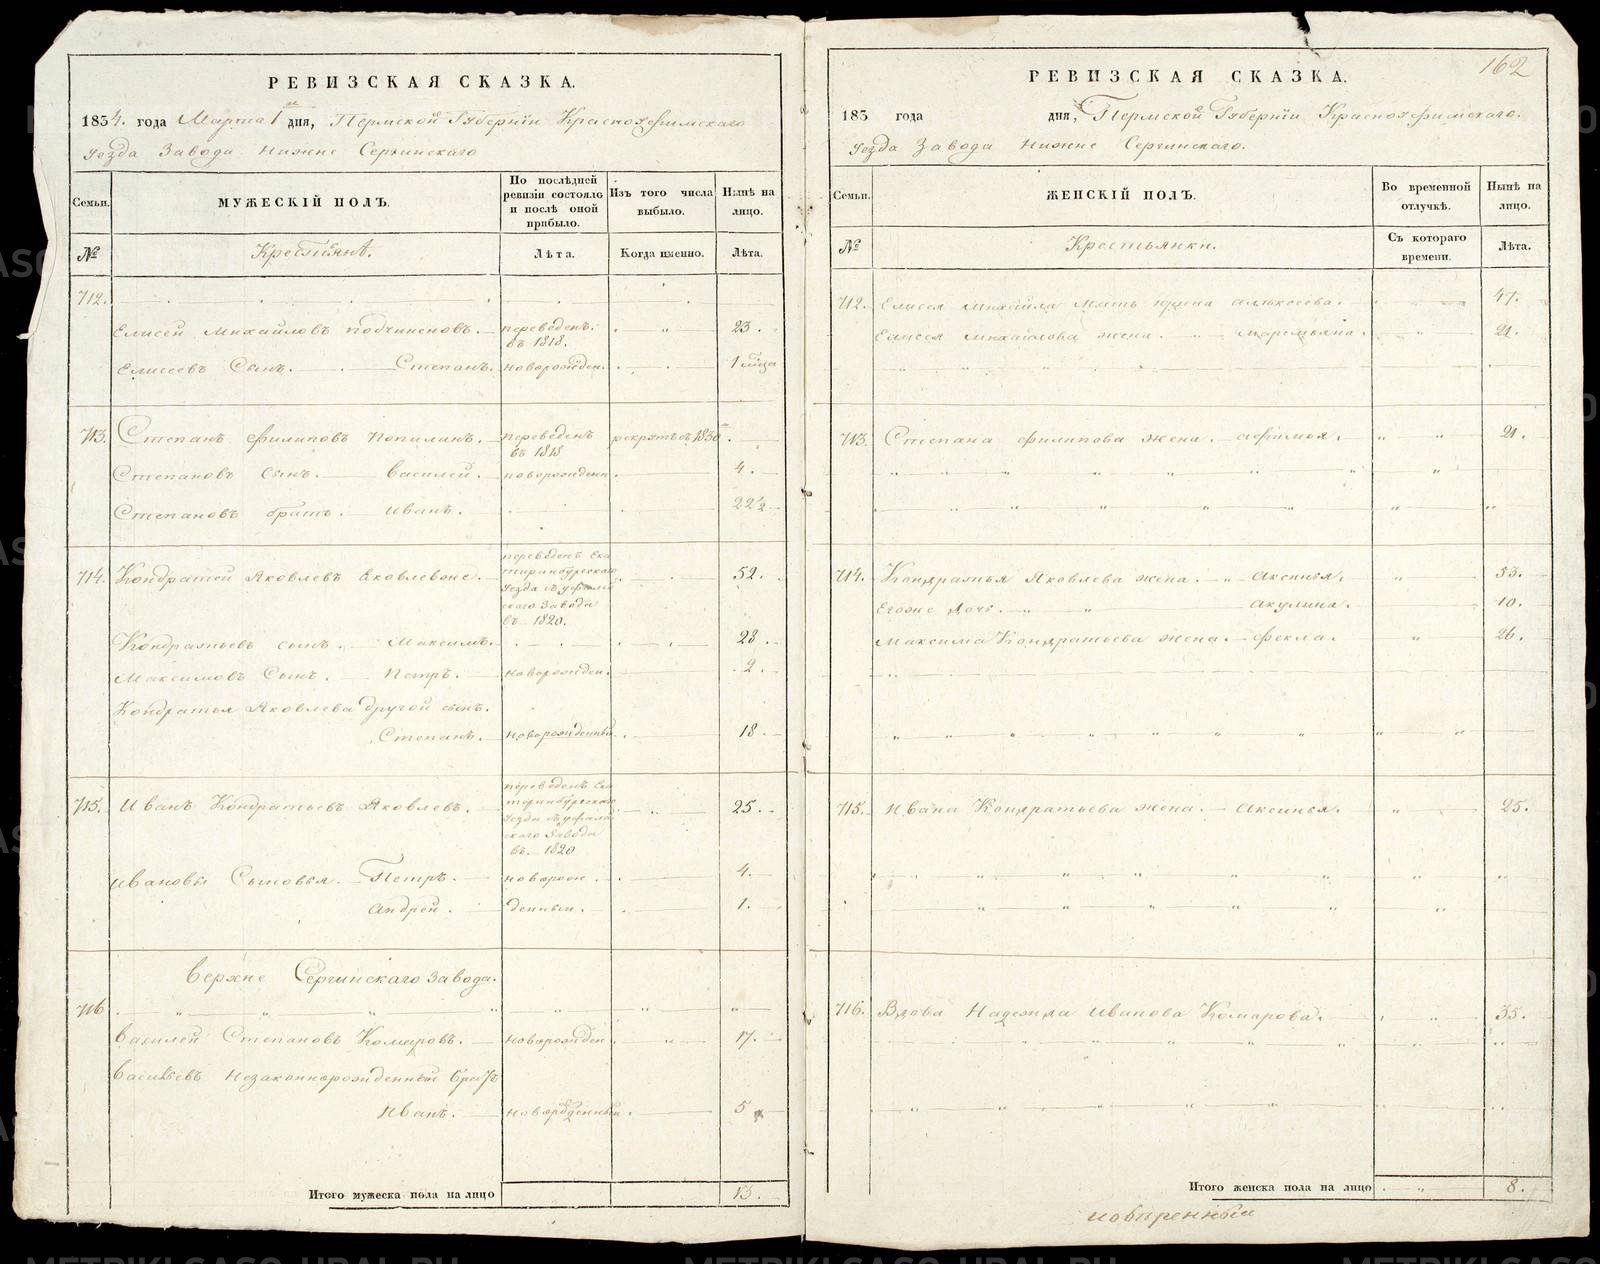 РЕВИЗСКАЯ СКАЗКА.
1834. года Марта 1 дня, Пермской Губернїи Красноуфимскаго
уезда Завода Нижне Сергинскаго
Семьи.
МУЖЕСКІЙ ПОЛЪ.
По послѣдней ревизіи состояло и послѣ оной прибыло.
Изъ того числа выбыло.
Нынѣ на лицо.
№
Крестьянѣ.
Лѣта.
Когда именно.
Лѣта.
712.
Елисей Михайловъ Подчиненовъ. переведенъ. въ 1818. 23.
Елисеевъ Сынъ. Степанъ. новорожден. 1
713. Степанъ Филиповъ Попилинъ. переведенъ въ 1818 рекрутъ въ 1830
Степановъ сынъ. Василей. новорожденн. 4.
Степановъ братъ. Иванъ. 22½
714. Кондратей Яковлевъ Яковлевъже. переведенъ Ека
теринбургскаго
уезда Суфаль
скаго Завода
въ 1820. 52.
Кондратьевъ сынъ. Максимъ. 28.
Максимовъ Сынъ. Петръ. новорожден. 2.
Кондратья Яковлева другой сынъ.
Степанъ. новорожденный. 18.
715. Иванъ Кондратьевъ Яковлевъ. переведенъ Ека
теринбургскаго
уезда Суфаль
скаго Завода
въ 1820 25.
Ивановы Сыновья. Петръ. новорож. 4.
Андрей. денныи. 1.
Верхне Сергинскаго завода.
716
Василей Степановъ Комаровъ. новорожден 17.
Васильевъ Незаконнорожденный братъ
Иванъ. новорожденный. 5
Итого мужеска пола на лицо 13.
162
РЕВИЗСКАЯ СКАЗКА.
183 года дня, Пермской Губернїи Красноуфимскаго.
уезда Завода Нижне Сергинскаго.
Семьи.
ЖЕНСКІЙ ПОЛЪ.
Во временной отлучкѣ.
Нынѣ на лицо.
№
Крестьянки.
Съ котораго времени.
Лѣта.
712. Елисея михайла Мать Ирина алѣксеева. 47.
Елисея михайлова жена. Маремьяна. 21.
713. Степана Филипова жена. афимья. 21.
714. Кондратья Яковлева жена. Аксинья. 53.
Егоже Дочь. Акулина. 10.
Максима Кондратьева жена. Фекла. 26.
715. Ивана Кондратьева жена. Аксинья. 25.
716. Вдова Надежда Иванова Комарова. 35.
Итого женска пола на лицо 8.